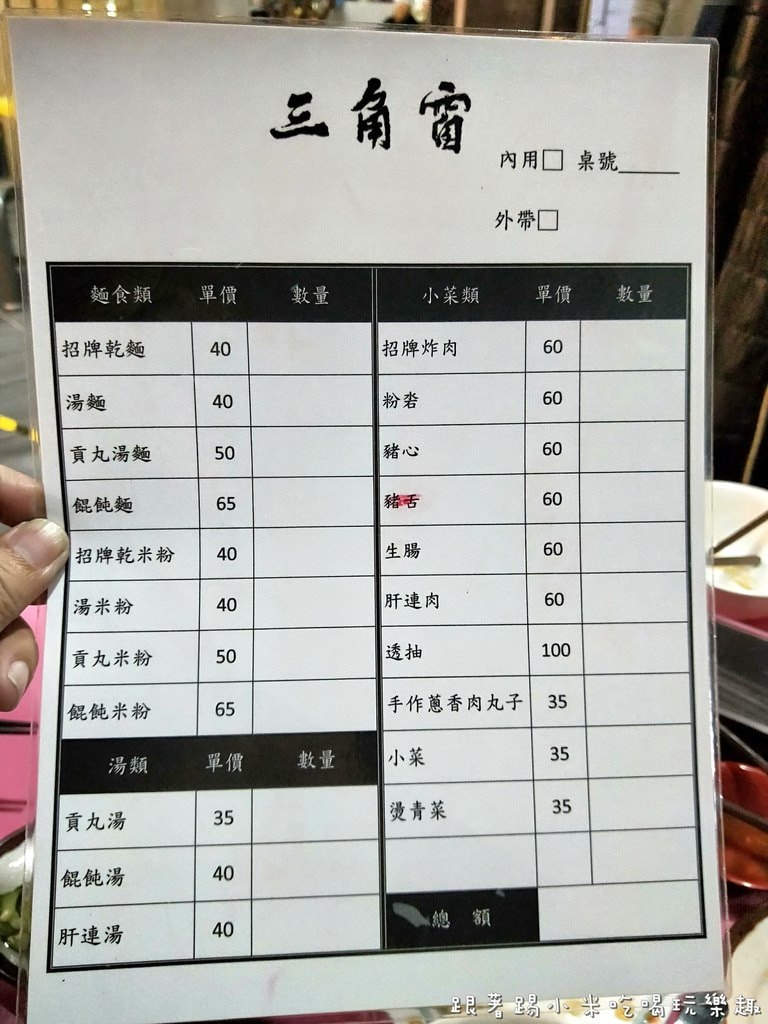 三角雷
內用□ 桌號_____
外帶□
麵食類 單價 數量
招牌乾麵 40
湯麵 40
貢丸湯麵 50
餛飩麵 65
招牌乾米粉 40
湯米粉 40
貢丸米粉 50
餛飩米粉 65
湯類 單價 數量
貢丸湯 35
餛飩湯 40
肝連湯 40
小菜類 單價 數量
招牌炸肉 60
粉硓 60
豬心 60
豬舌 60
生腸 60
肝連肉 60
透抽 100
手作蔥香肉丸子 35
小菜 35
燙青菜 35
總額
跟著踢小米吃喝玩樂趣